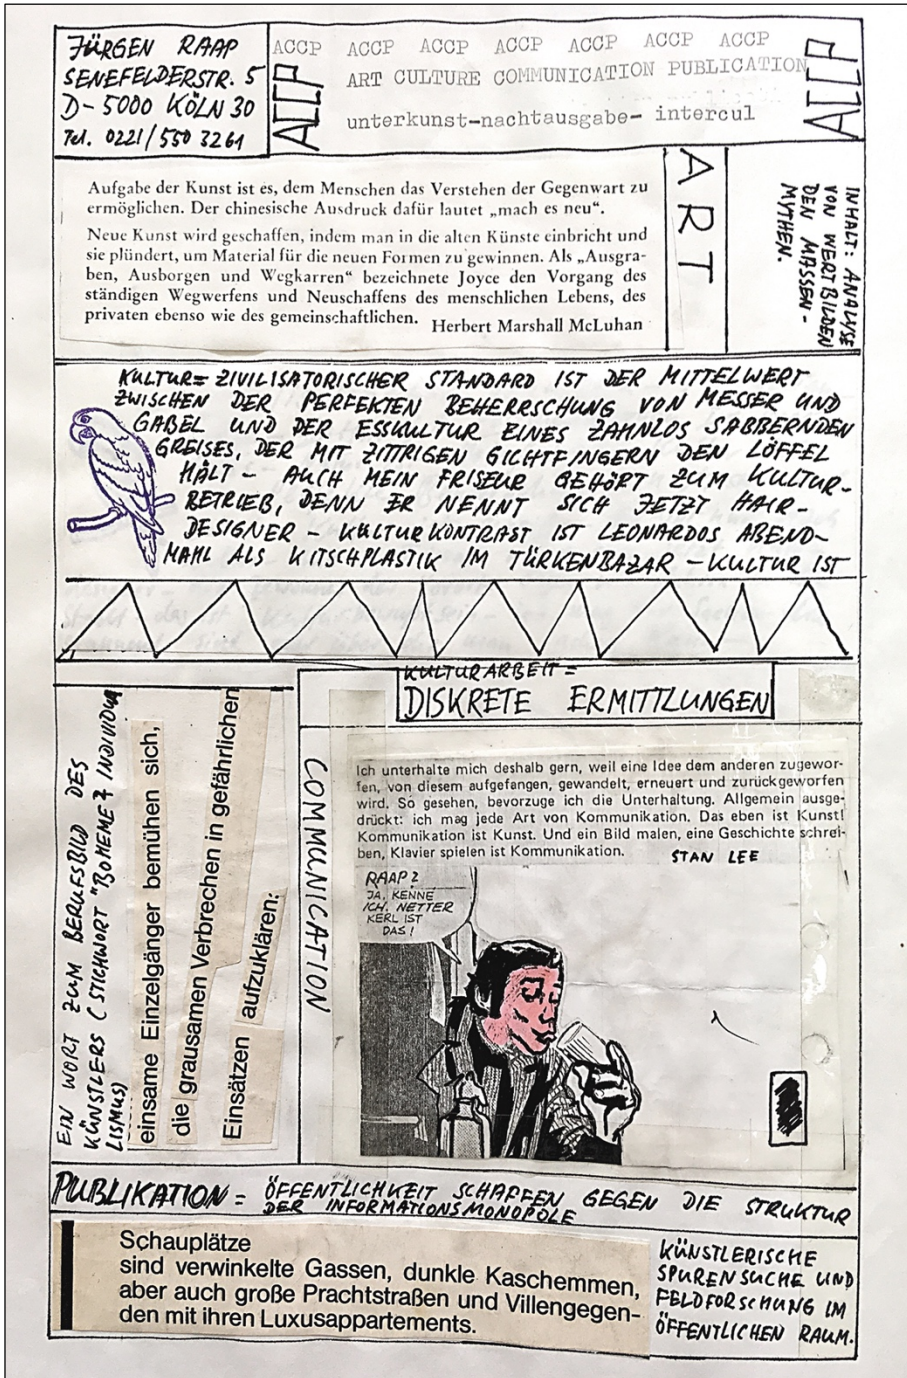 JÜRGEN RAAP
SENEFELDERSTR. 5
D-5000 KÖLN 30
Tel. 0221/550 3261
ACCP
ACCP ACCP ACCP ACCP ACCP ACCP ACCP
ART CULTURE COMMUNICATION PUBLICATION
unterkunst-nachtausgabe- intercul
ACCP
Aufgabe der Kunst ist es, dem Menschen das Verstehen der Gegenwart zu
ermöglichen. Der chinesische Ausdruck dafür lautet „mach es neu“.
Neue Kunst wird geschaffen, indem man in die alten Künste einbricht und
sie plündert, um Material für die neuen Formen zu gewinnen. Als „Ausgra-
ben, Ausborgen und Wegkarren“ bezeichnete Joyce den Vorgang des
ständigen Wegwerfens und Neuschaffens des menschlichen Lebens, des
privaten ebenso wie des gemeinschaftlichen. Herbert Marshall McLuhan
ART
INHALT: ANALYSE
VON WERTBILDEN
DEN MASSEN-
MYTHEN.
KULTUR= ZIVILISATORISCHER STANDARD IST DER MITTELWERT
ZWISCHEN DER PERFEKTEN BEHERRSCHUNG VON MESSER UND
GABEL UND DER ESSKULTUR EINES ZAHNLOS SABBERNDEN
GREISES, DER MIT ZITTRIGEN GICHTFINGERN DEN LÖFFEL
HÄLT - AUCH MEIN FRISEUR GEHÖRT ZUM KULTUR-
BETRIEB, DENN ER NENNT SICH JETZT HAIR-
DESIGNER - KULTURKONTRAST IST LEONARDOS ABEND-
MAHL ALS KITSCHPLASTIK IM TÜRKENBAZAR - KULTUR IST
KULTURARBEIT =
DISKRETE ERMITTLUNGEN
EIN WORT ZUM BERUFSBILD DES
KÜNSTLERS (STICHWORT "BOHEME" & INDIVIDUA
LISMUS)
einsame Einzelgänger bemühen sich,
die grausamen Verbrechen in gefährlichen
Einsätzen aufzuklären.
COMMUNICATION
Ich unterhalte mich deshalb gern, weil eine Idee dem anderen zugewor-
fen, von diesem aufgefangen, gewandelt, erneuert und zurückgeworfen
wird. So gesehen, bevorzuge ich die Unterhaltung. Allgemein ausge-
drückt: ich mag jede Art von Kommunikation. Das eben ist Kunst!
Kommunikation ist Kunst. Und ein Bild malen, eine Geschichte schrei-
ben, Klavier spielen ist Kommunikation. STAN LEE
RAAP?
JA, KENNE
ICH. NETTER
KERL IST
DAS!
PUBLIKATION = ÖFFENTLICHKEIT SCHAFFEN GEGEN DIE STRUKTUR
DER INFORMATIONSMONOPOLE
Schauplätze
sind verwinkelte Gassen, dunkle Kaschemmen,
aber auch große Prachtstraßen und Villengegen-
den mit ihren Luxusappartements.
KÜNSTLERISCHE
SPURENSUCHE UND
FELDFORSCHUNG IM
ÖFFENTLICHEN RAUM.